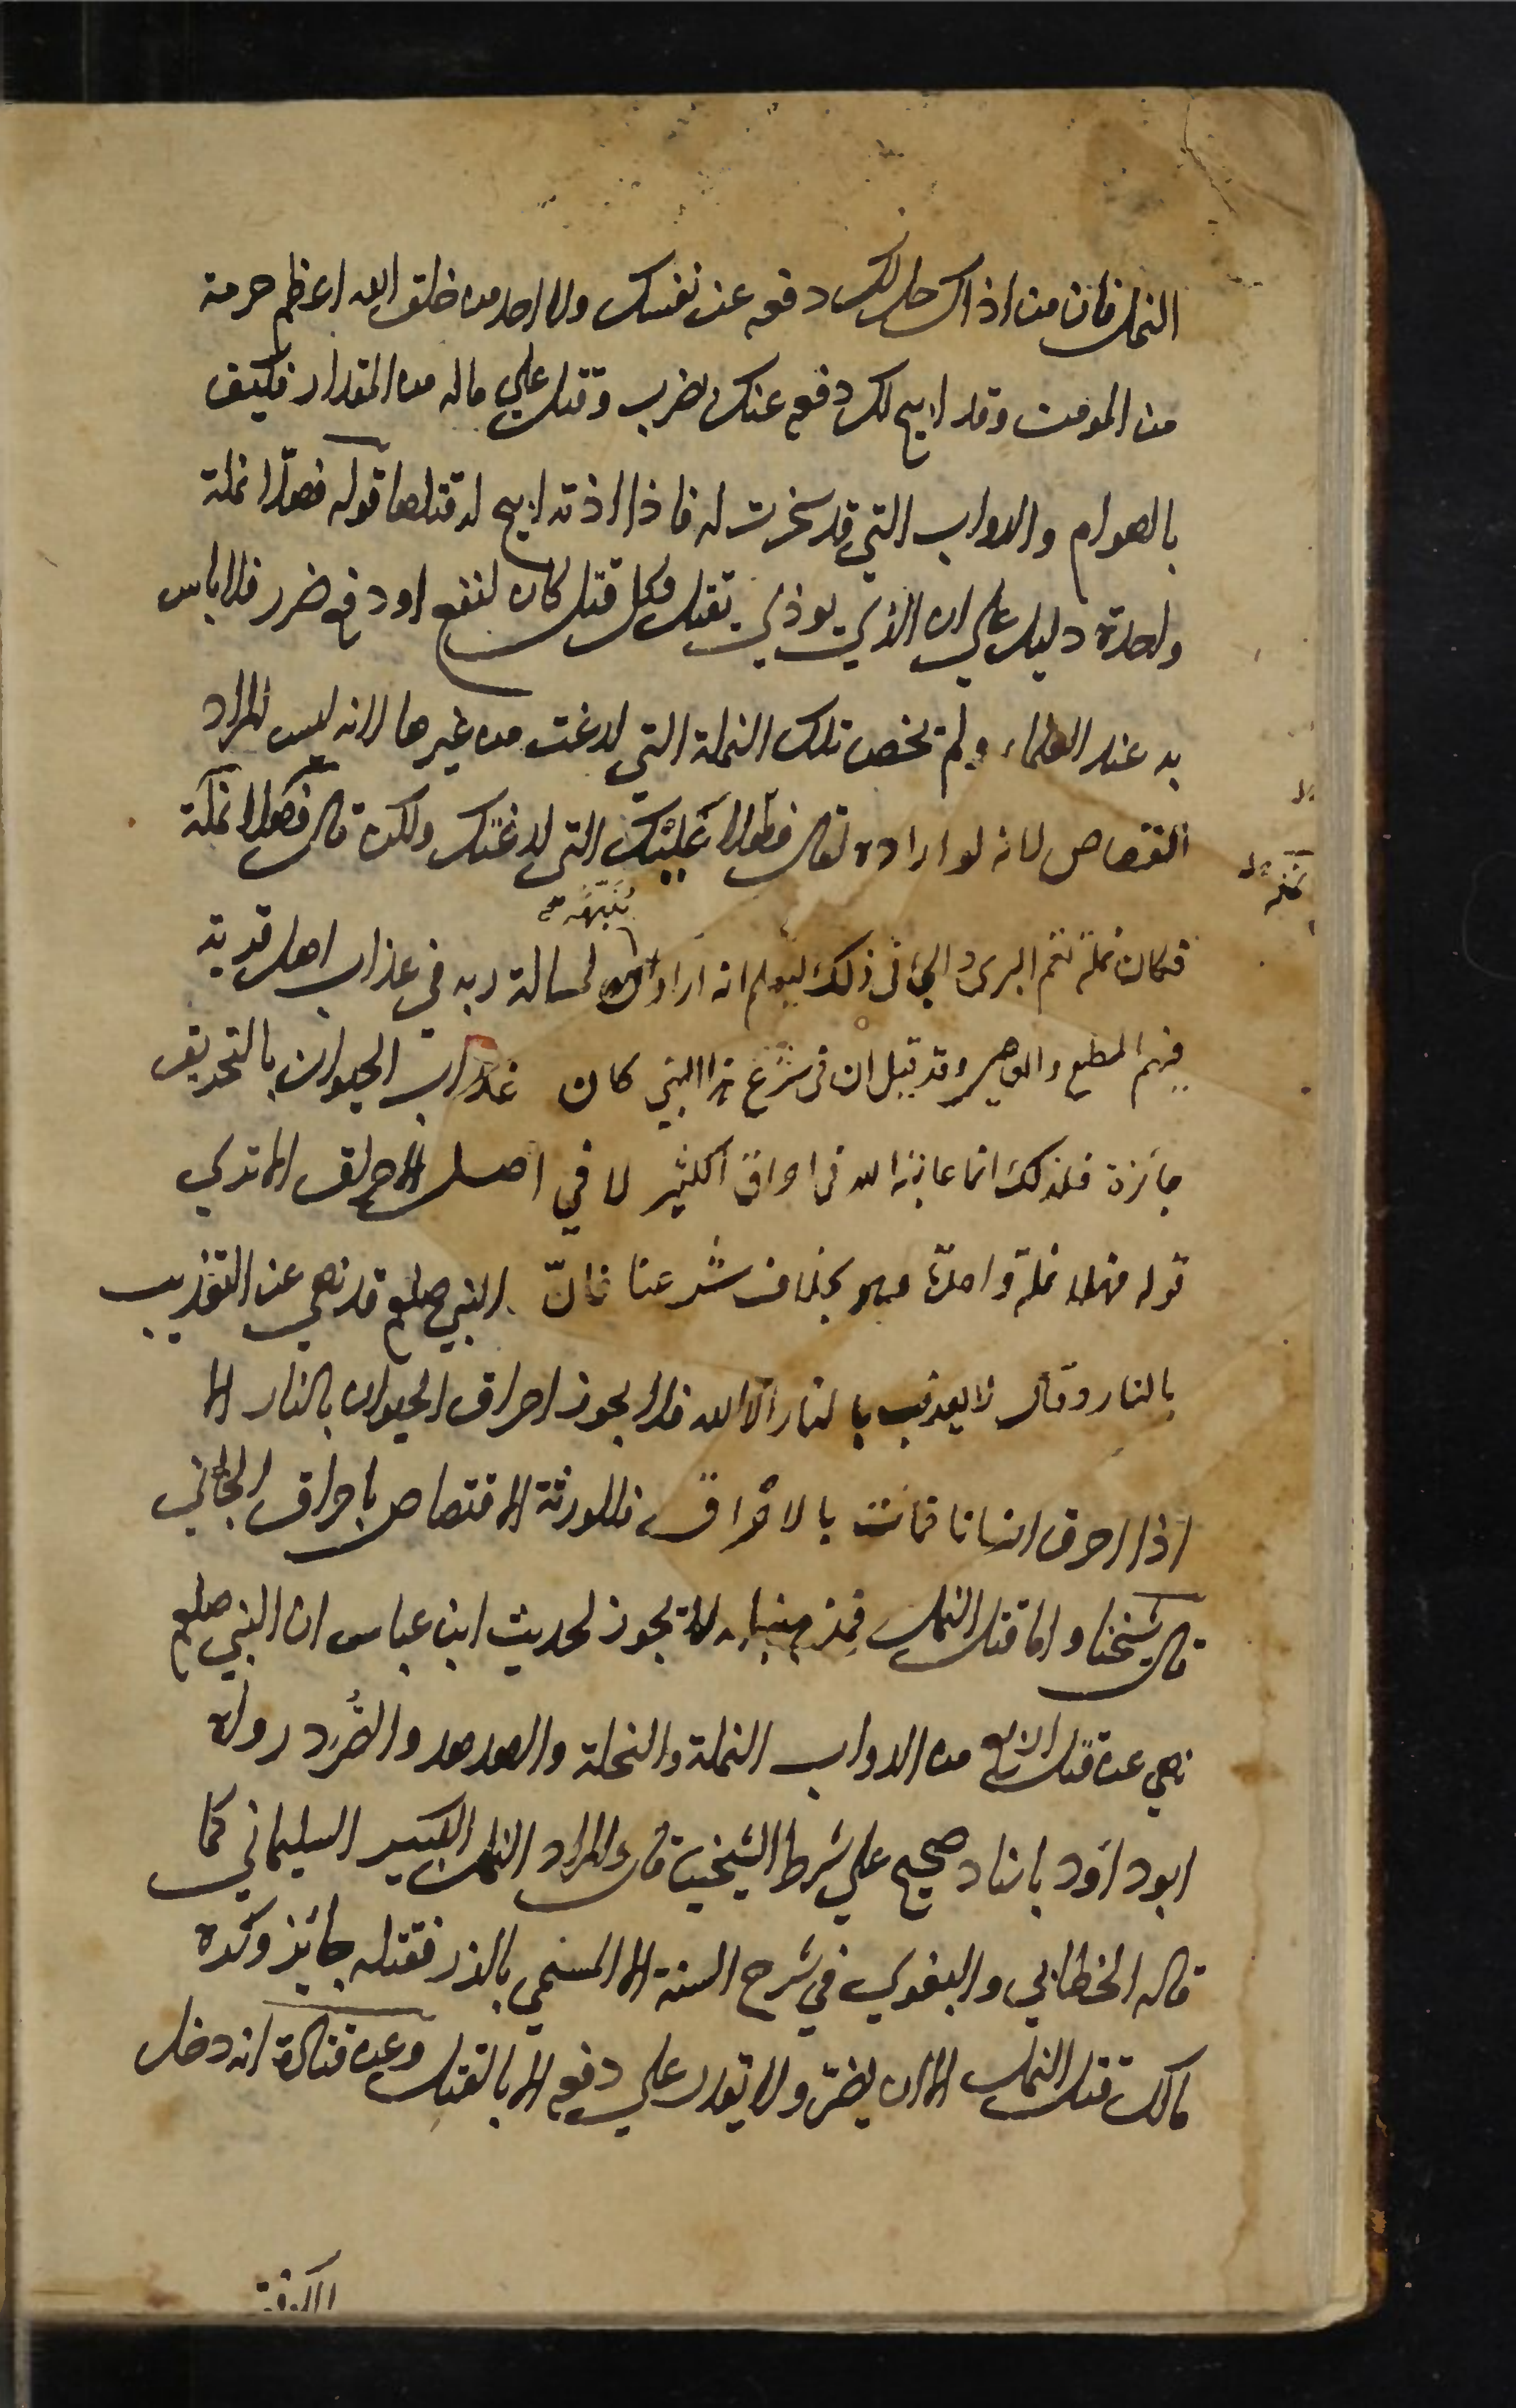 النمل فان من اذاك حل لك دفعه عن نفسك ولا احد من خلق الله اعظم حرمة
من المومن وقد ابيح لك دفعه عنك بضرب وقتل علي ماله من المقدار فكيف
بالهوام والدواب التي قد سخرت له فاذا اذته ابيح له قتلها قوله فهلا نملة
واحدة دليل علي ان الذي يوذي يقتل وكل قتل كان لنفع او دفع ضرر فلا باس
به عند العلماء ولم تخص تلك النملة التي لدغت من غيرها لانه ليس المراد
القصاص لانه لو اراده لقال فهلا نملتك التي لدغتك ولكن قال فهلا نملة
فكان نملة تعم البرى والجاني ذلك ليعلم انه اراد
ينبهه
لمسالة ربه في عذاب اهل قرية
فيهم المطيع والعاصي وقد قيل ان في شرع هذا النبي كان عذاب الحيوان بالتحريق
جائزة فلذلك انما عاتبه الله في احراق الكثير لا في اصل الاحراق الا تري
قوله فهلا نملة واحدة وهو بخلاف شرعنا فانّ النبي صلعم قد نهي عن التعذيب
بالنار وقال لا يعذب بالنار الا الله فلا يجوز احراق الحيوان بالنار الا
اذا احرق انسانا فمات بالاحراق فللورثة الاقتصاص باحراق الجاني
قال شيخنا واما قتل النمل فمذهبنا لا يجوز لحديث ابن عباس ان النبي صلعم
نهي عن قتل اربع من الدواب النملة والنحلة والهدهد والصُّرد رواه
ابو داود باسناد صحيح علي شرط الشيخين قال المراد النمل الكبير السليماني كما
قاله الخطابي والبغوي في شرح السنة اما المسمي بالذر فقتله جائز وكره
مالك قتل النمل الا ان يضر ولا يقدر علي دفعه الا بالقتل وعن قتادة انه دخل
الكوفة